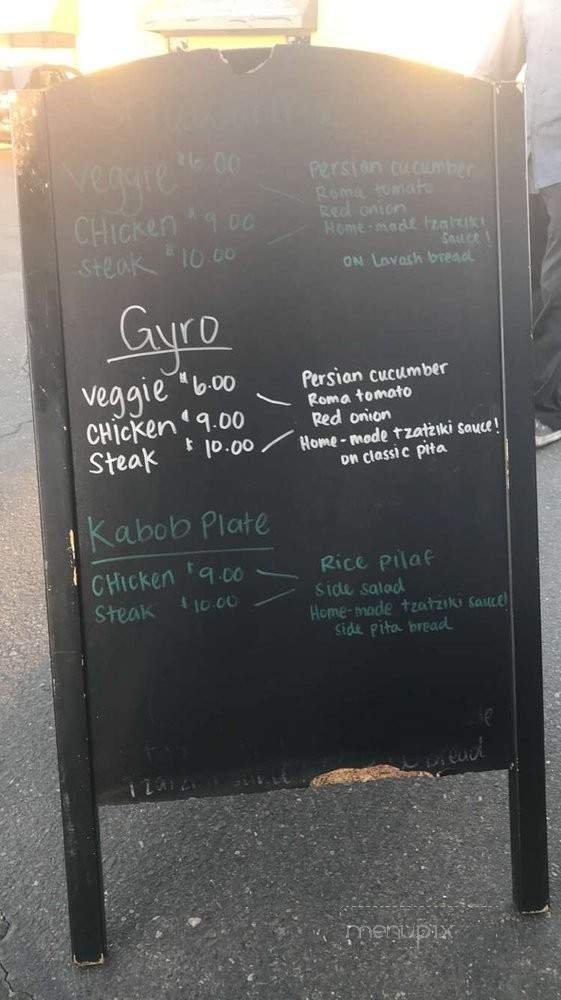 Shawarma
Veggie $6.00
CHicken $9.00
Steak $10.00
Persian cucumber
Roma tomato
Red onion
Home-made tzatziki
sauce!
ON Lavash bread
Gyro
Veggie $6.00
CHicken $9.00
Steak $10.00
Persian cucumber
Roma tomato
Red onion
Home-made tzatziki sauce!
on classic pita
Kabob Plate
CHicken $9.00
Steak $10.00
Rice pilaf
Side salad
Home-made tzatziki sauce!
side pita bread
bread
menupix